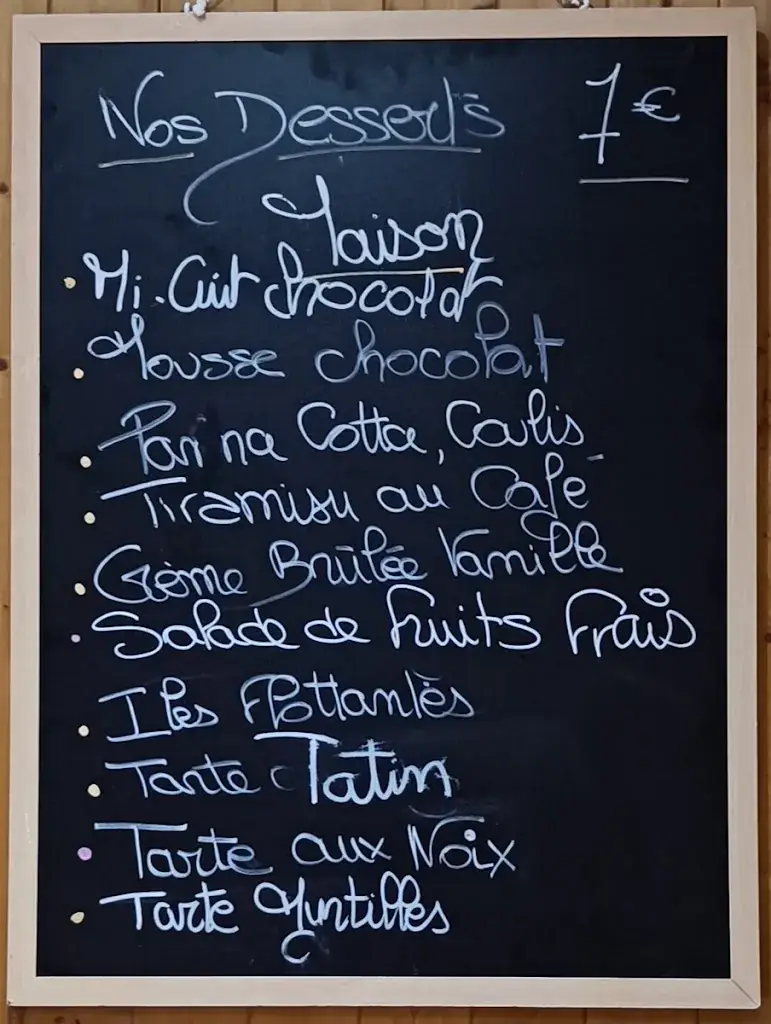 Nos Desserts 7€
Maison
Mi-Cuit chocolat
Mousse chocolat
Panna Cotta, Coulis
Tiramisu au Café
Crème Brûlée Vanille
Salade de fruits Frais
Iles Flottantes
Tarte Tatin
Tarte aux Noix
Tarte Myrtilles